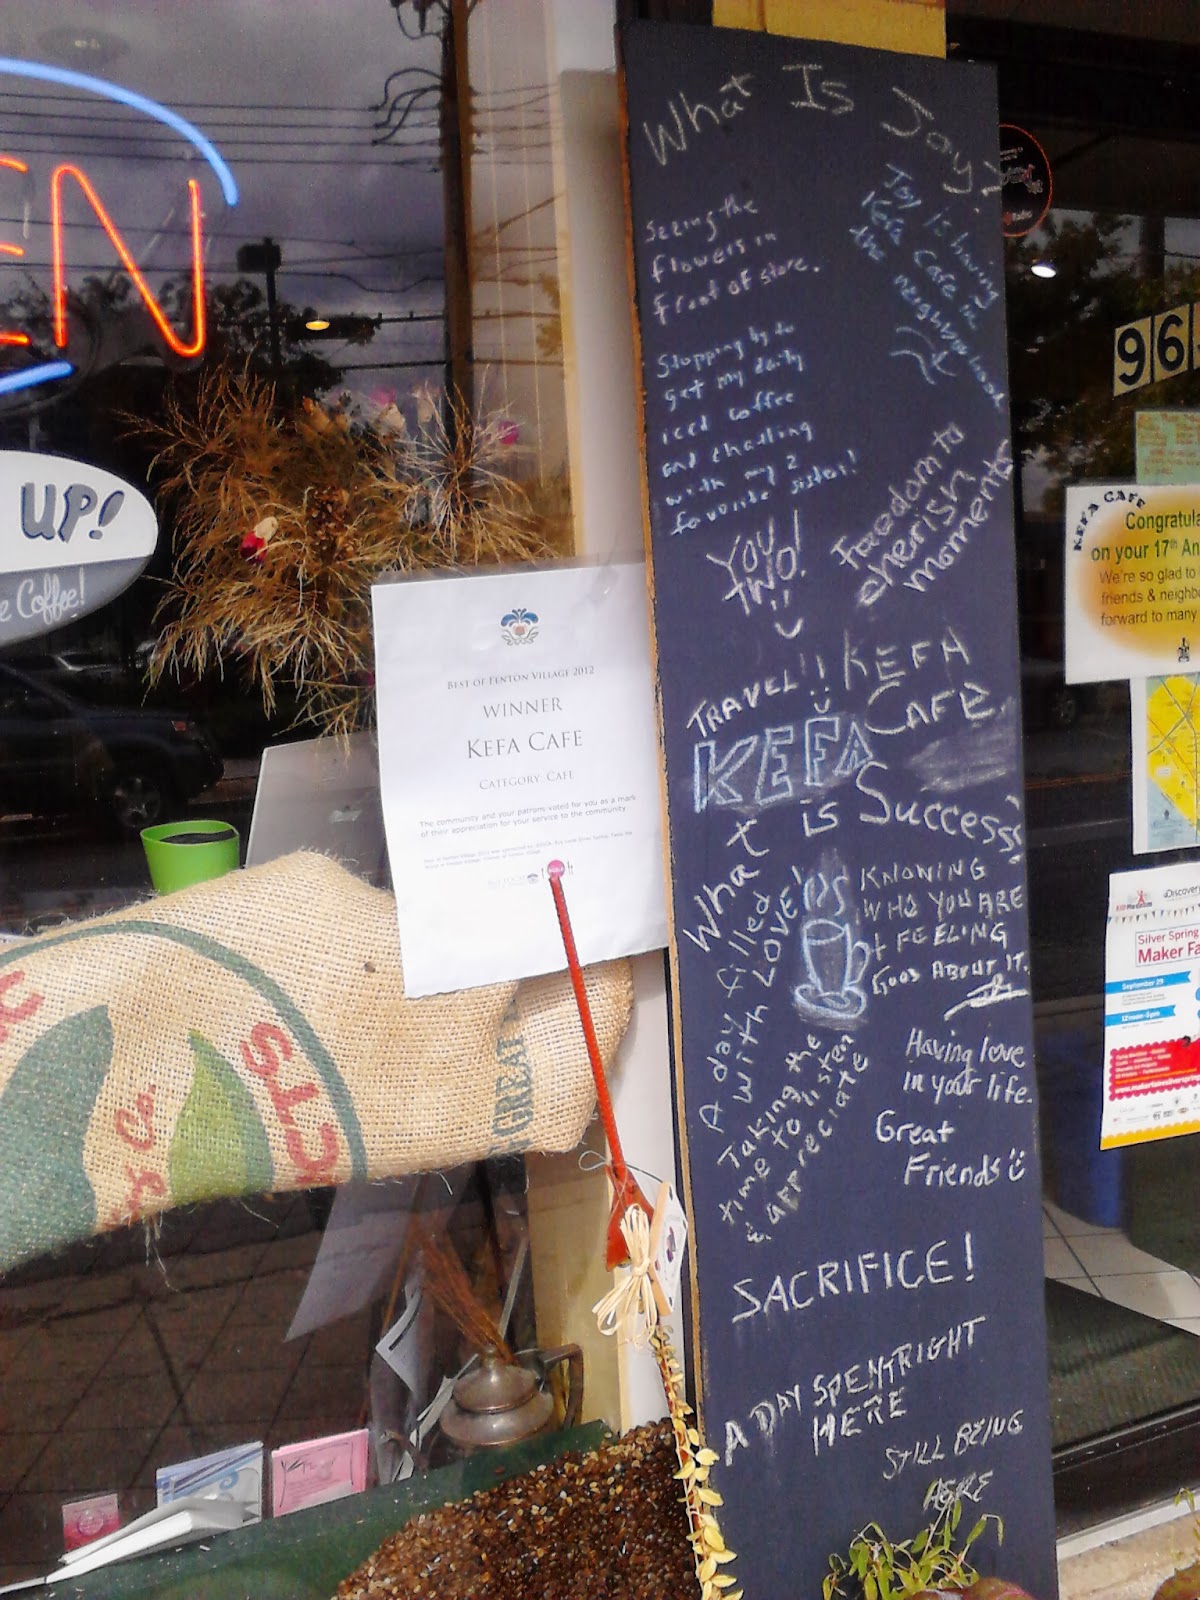 EN
UP!
e Coffee!
BEST OF FENTON VILLAGE 2012
WINNER
KEFA CAFE
CATEGORY: CAFE
The community and your patrons voted for you as a mark
of their appreciation for your service to the community.
GREAT
Co.
What Is Joy?
Seeing the
flowers in
front of store.
Joy is having
Kefa Cafe in
the neighborhood
Stopping by to
get my daily
iced coffee
and chatting
with my 2
favorite sisters!
YOU
TWO!
Freedom to
cherish
moments
TRAVEL!!
KEFA
CAFE.
KEFA
What is Success?
A day filled
with LOVE!
KNOWING
WHO YOU ARE
+ FEELING
GOOD ABOUT IT.
Taking the
time to listen
& appreciate
Having love
in your life.
Great
Friends
SACRIFICE!
A DAY SPENT RIGHT
HERE
STILL BEING
96
KEFA CAFE
Congratula
on your 17th An
We're so glad to
friends & neighb
forward to many
Discovery
Silver Spring
Maker Fa
September 29
12noon-5pm